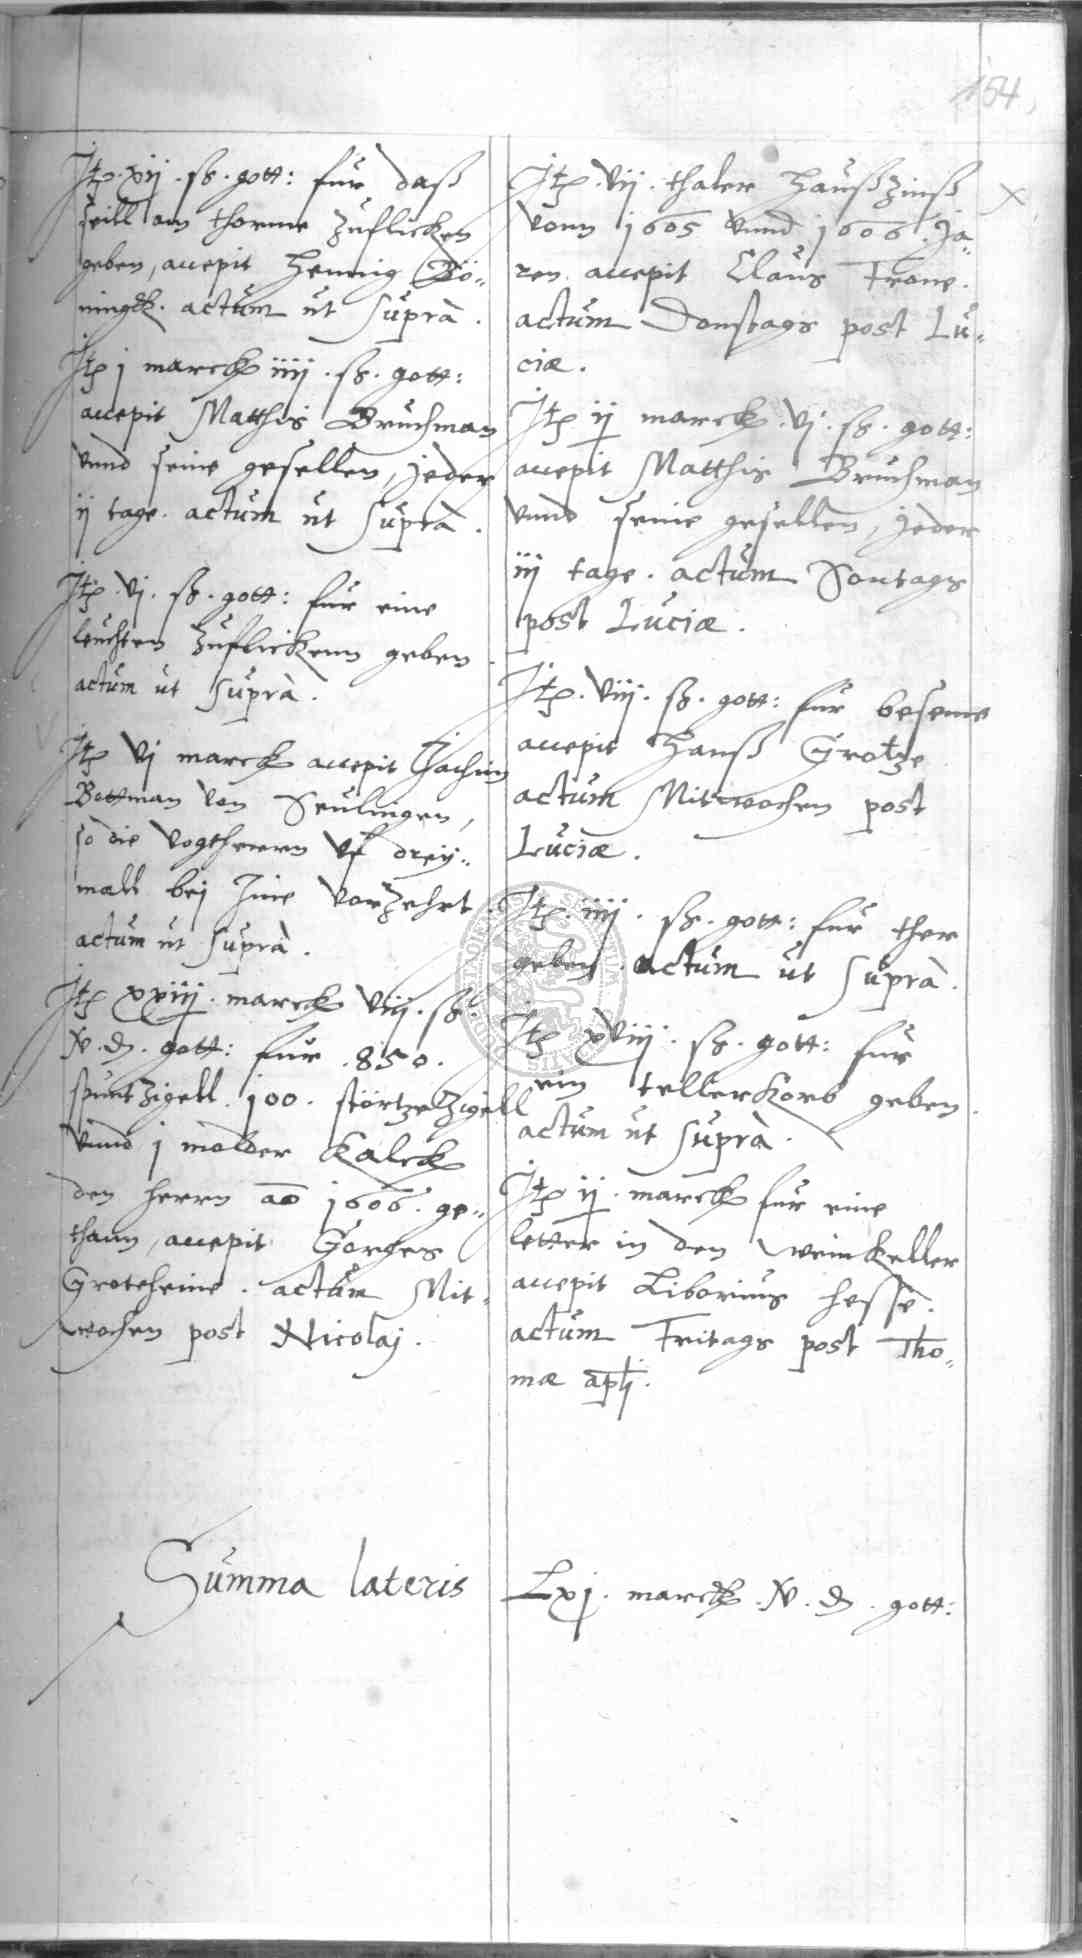 154
Itp. xij. ß. gott: fur daß
seill am thorme zuflicken
geben, accepit Hennig Bö¨
ningk. actum ut suprà.
Itp j marck iiij. ß. gott:
accepit Matthis Bruchman
vnnd seine gesellen, jeder
ij tage. actum ut suprà.
Itp. vj. ß. gott: fur eine
leuchten zuflickenn geben.
actum ut suprà.
Itp vj marck accepit Jachim
Bottman von Seulingen,
so die vogtherrn vf drey¨
mall bej Ime vorzehrt.
actum ut suprà.
Itp xxiij. marck viij. ß.
gott: fur 850.
spuntzigell. 100. störtzelzigell
vnnd j molder Kalck
den herrn ao 1606. ge¨
thann, accepit Gorges
Groteheine. actum Mit¨
wochen post Nicolaj.
Itp. vij. thaler Haußzinß
vonn 1605 vnnd 1606. Ja¨
ren. accepit Claus Trone.
actum Donstags post Lu¨
ciæ.
Itp ij marck. vj. ß. gott:
accepit Matthis Bruchman
vnnd seine gesellen, jeder
iij tage. actum Sontags
post Luciæ.
Itp. viij. ß. gott: fur beseme
accepit Hanß Grotze
actum Mitwochen post
Luciæ.
Itp. iiij. ß. gott: fur ther
geben. actum ut suprà.
Itp xviij. ß. gott: fur
ein tellerkorb geben.
actum ut suprà.
Itp ij. marck fur eine
letter in den weinkeller
accepit Liborius Hesse.
actum Fritags post Tho¨
mæ apli.
Summa lateris Lxj. marck. gott: